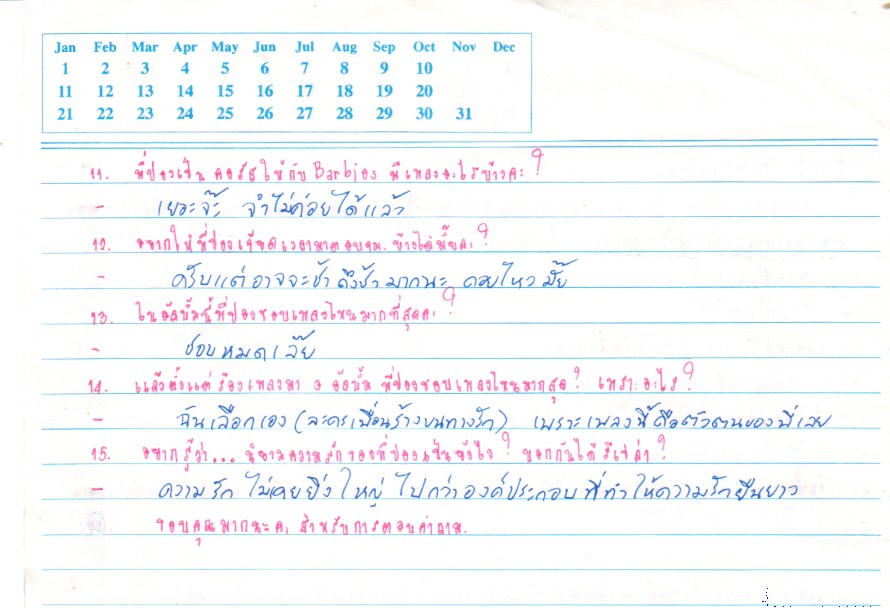 Jan Feb Mar Apr May Jun Jul Aug Sep Oct Nov Dec
1 2 3 4 5 6 7 8 9 10
11 12 13 14 15 16 17 18 19 20
21 22 23 24 25 26 27 28 29 30 31
11. พี่ป่องเป็น คอรัสให้กับ Barbies มีเพลงอะไรบ้างคะ?
- เยอะจ๊ะ จำไม่ค่อยได้แล้ว
12. อยากให้พี่ป่องเจียดเวลามาตอบจม. บ้างได้มั๊ยคะ?
- ครับแต่อาจจะช้า ถึงช้ามากนะ คอยไหวมั้ย
13. ในอัลบั้มนี้พี่ป่องชอบเพลงไหนมากที่สุดคะ?
- ชอบหมดเลี้ย
14. แล้วตั้งแต่ร้องเพลงมา 3 อัลบั้ม พี่ป่องชอบเพลงไหนมากสุด? เพราะอะไร?
- ฉันเลือกเอง (ละครเพื่อนร้างบนทางรัก) เพราะเพลงนี้คือตัวตนของพี่เลย
15. อยากรู้ว่า... นิยามความรักของพี่ป่องเป็นยังไง? บอกกันได้รึเปล่า?
- ความรัก ไม่เคยยิ่งใหญ่ ไปกว่าองค์ประกอบ ที่ทำให้ความรักยืนยาว
ขอบคุณมากนะคะ สำหรับการตอบคำถาม.